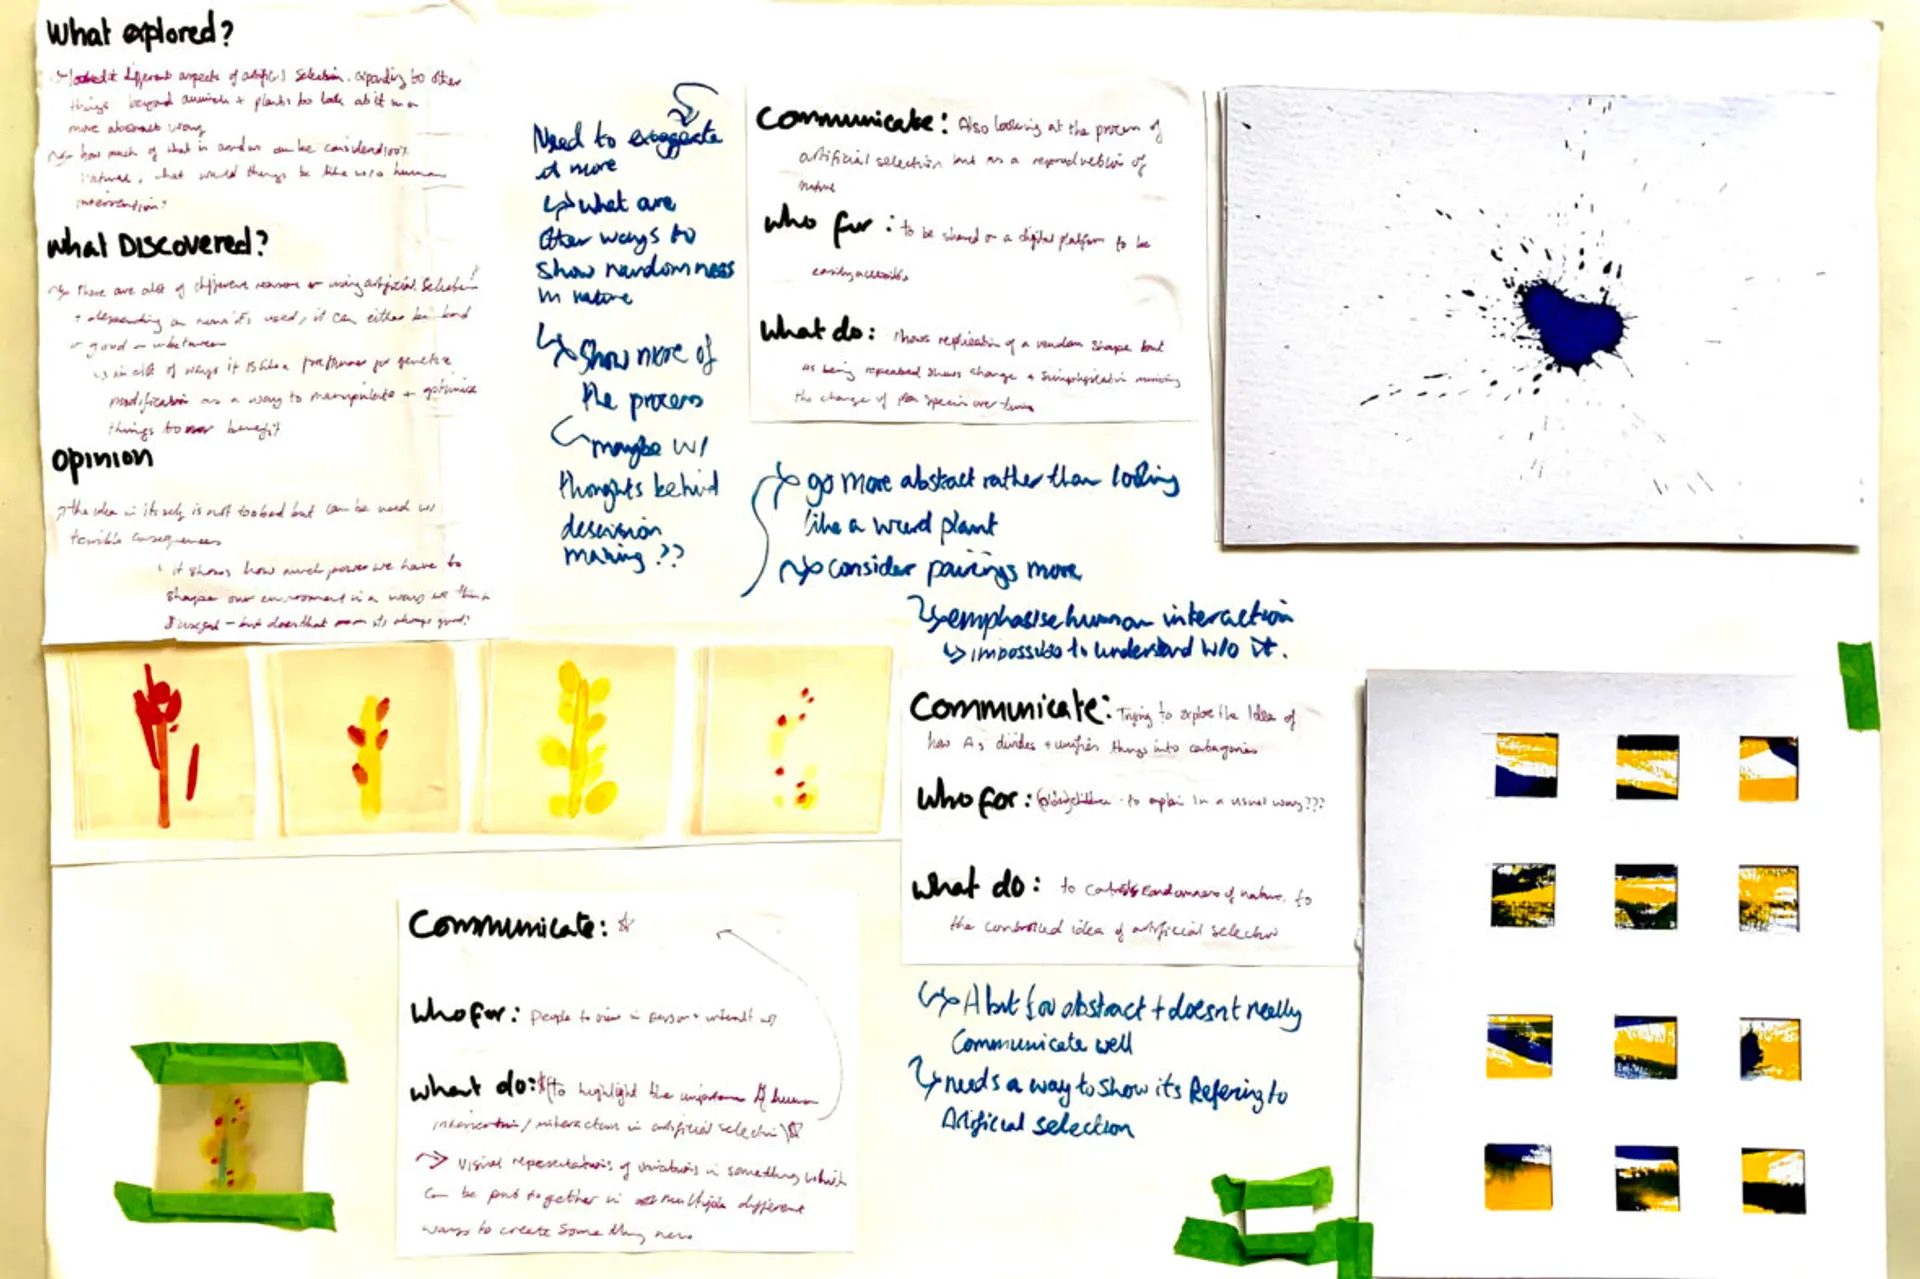 What explored?
different aspects of artificial selection, expanding to other
things beyond animals + plants to look at it in a
more abstract way
how much of what is around can be considered 100%
natural, what would things be like w/o human
intervention?
What Discovered?
There are alot of different reasons using artificial selection
+ depending on how it's used, it can either be bad
good
in alot of ways it is like a for genetic
modification as a way to manipulate + optimise
things to our benefit
Opinion
the idea in itself is not too bad but can be used w/
terrible consequences
it shows how much power we have to
shape our environment in a way we think
is useful – but does that mean its always good?
Need to exaggerate
it more
what are
other ways to
show randomness
in nature
show more of
the process
maybe w/
thoughts behind
descision
making ??
Communicate: Also looking at the process of
artificial selection but as a reproduction of
nature
who for: to be shared on a digital platform to be
easily accessible
What do: shows replication of a random shape but
as being repeated shows change + simplification mimicing
the change of species over time
go more abstract rather than looking
like a weird plant
consider pairings more
emphasise human interaction
impossible to understand w/o it.
Communicate: Trying to explore the idea of
how AS divides + unifies things into catagories
Who for: children - to explain in a visual way???
What do: to randomness of nature, to
the controlled idea of artificial selection
A bit too abstract + doesnt really
Communicate well
needs a way to show its Refering to
Artificial selection
Communicate:
Who for: people to view in person + interact w/
What do: to highlight the importance of human
intervention / interaction in artificial selection
Visual representations of variations in something which
can be put together in multiple different
ways to create something new